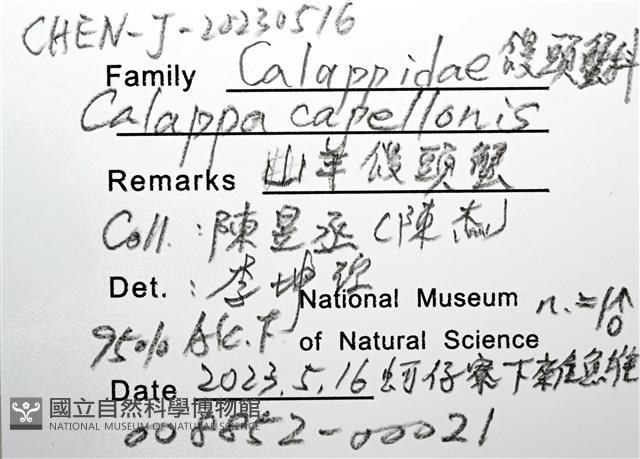 CHEN-J-20230516
Family Calappidae 饅頭蟹科
Calappa capellonis
Remarks 山羊饅頭蟹
Coll. : 陳昱丞 (陳
Det. : 李坤
National Museum n.=1♂
95% Alc.
of Natural Science
Date 2023.5.16 蚵仔寮下雜魚堆
國立自然科學博物館
NATIONAL MUSEUM OF NATURAL SCIENCE
008852-00021